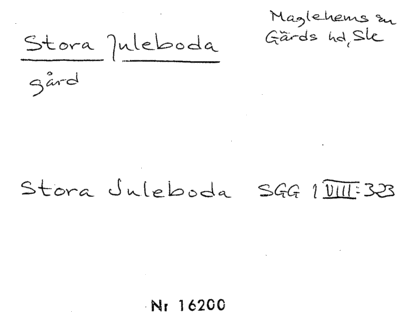 Maglehems sn
Stora Juleboda
Gärds hd, Sk
gård
Stora Juleboda SGG 1 VIII:323
Nr 16200